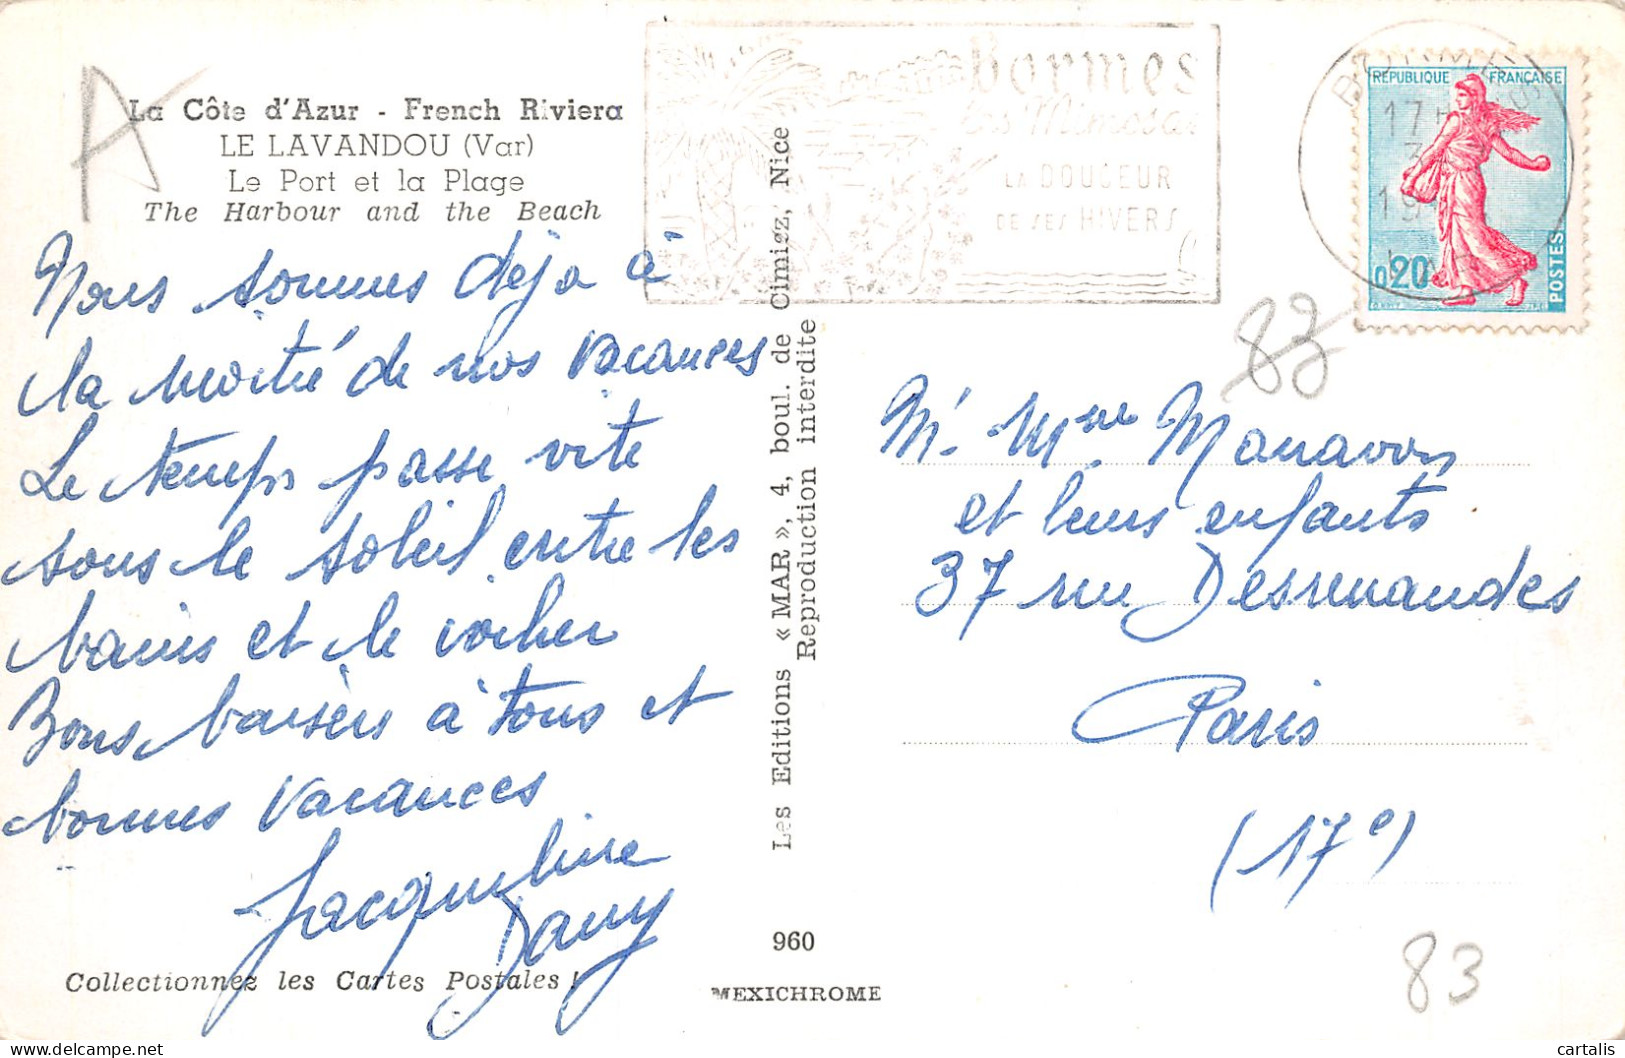 La Côte d'Azur - French Riviera
LE LAVANDOU (Var)
Le Port et la Plage
The Harbour and the Beach
Nous sommes déja à
la moitié de nos vacances
Le temps passe vite
sous le soleil entre les
bains et le rocher
Bons baisers à tous et
bonnes vacances
Jacqueline
Dany
Collectionnez les Cartes Postales !
Les Editions « MAR », 4, boul. de Cimiez, Nice
Reproduction interdite
960
MEXICHROME
bormes
les Mimosas
LA DOUCEUR
DE SES HIVERS
17H
19
RÉPUBLIQUE FRANÇAISE
0,20
POSTES
83
M. Mme Manavon
et leurs enfants
37 rue Desrenaudes
Paris
(17e)
83
A
cartalis